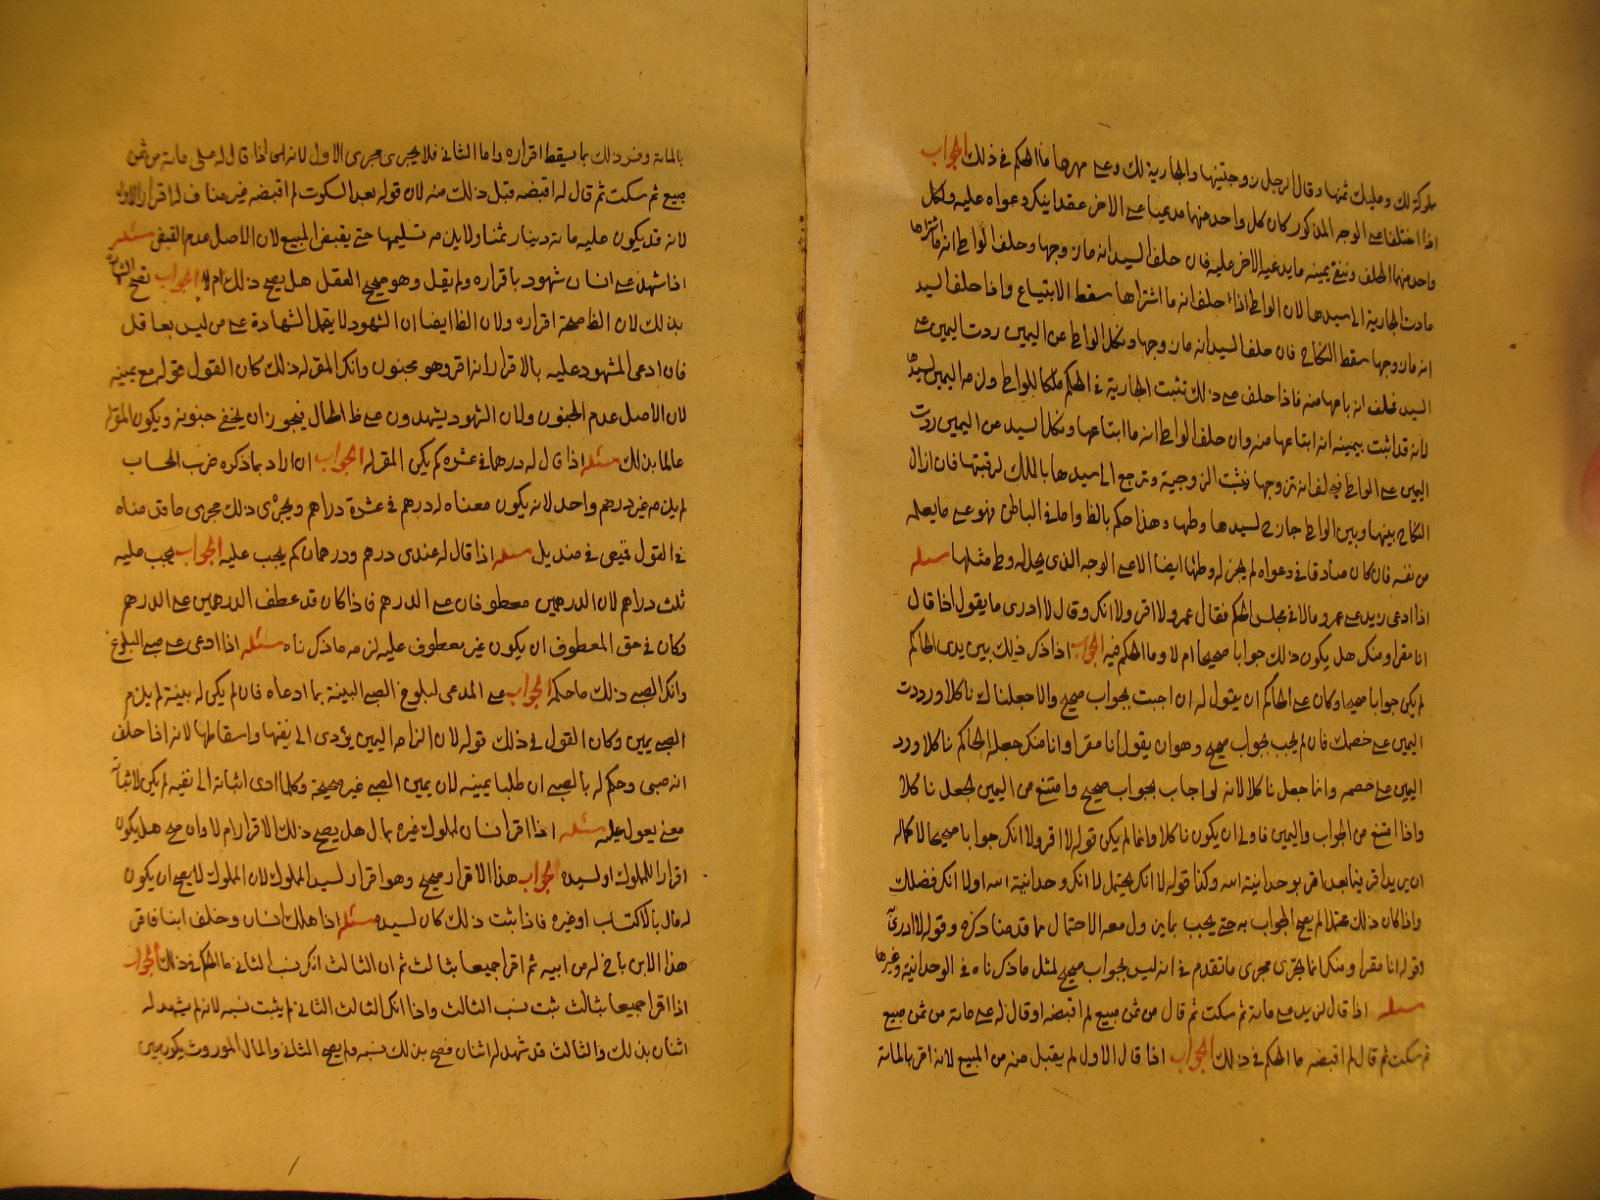 مملوكة لك وعليك ثمنها وقال الرجل زوجتنيها والجارية لك وعلي مهرها ما الحكم في ذلك الجواب
اذا اختلفا على الوجه المذكور كان كل واحد منهما مدعيا على الاخر عقدا ينكره دعواه عليه ولكل
واحد منهما الحلف وينفي بيمينه ما يدعيه الاخر عليه فان حلف السيد انه ما زوجها وحلف الواطي انه ما اشتراها
عادت الجارية الى سيدها لان الواطي اذا حلف انه ما اشتراها سقط الابتياع واذا حلف السيد
انه ما زوجها سقط النكاح فان حلف السيد انه ما زوجها ونكل الواطي عن اليمين ردت اليمين على
السيد فحلف انه باعها منه فاذا حلف على ذلك تثبت الجارية في الحكم ملكا للواطي ولزمه اليمين لسيدها
لانه قد اثبت بيمينه انه ابتاعها منه وان حلف الواطي انه ما ابتاعها ونكل السيد عن اليمين ردت
اليمين على الواطي فيحلف انه تزوجها فتثبت الزوجية وترجع الى سيدها بالملك لرقبتها فان ازال
النكاح بينها وبين الواطي جاز لسيدها وطيها وهذا حكم بالظاهر واما في الباطن فهو على ما يعلمه
من نفسه فان كان صادقا في دعواه لم يجز له وطئها ايضا الا على الوجه الذي يحل له وطي مثلها مسئله
اذا ادعى زيد على عمرو مالا في مجلس الحكم فقال عمرو لا اقر ولا انكر وقال لا ادري ما يقول اذا قال
انا مقر او منكر هل يكون ذلك جوابا صحيحا ام لا وما الحكم فيه الجواب اذا ذكر ذلك بين يدي الحاكم
لم يكن جوابا صحيحا وكان على الحاكم ان يقول له ان اجبت بجواب صحيح والا جعلناك ناكلا ورددت
اليمين على خصمك فان لم يجب بجواب صحيح وهو ان يقول انا مقر او انا منكر جعله الحاكم ناكلا ورد
اليمين على خصمه وانما جعل ناكلا لانه لو اجاب بجواب صحيح وامتنع من اليمين لجعل ناكلا
واذا امتنع من الجواب واليمين فاولى ان يكون ناكلا وانما لم يكن قوله لا اقر ولا انكر جوابا صحيحا لاحتماله
ان يريد اقر فيما بعد اقر بوحدانية الله وكذا قوله لا انكر يحتمل لا انكر وحدانية الله او لا انكر فضلك
واذا كان ذلك محتملا لم يصح الجواب به حتى يجيب بما يزول معه الاحتمال بما قدمنا ذكره وقوله لا ادري
وقوله انا مقر او منكر انما يجري مجرى ما تقدم في انه ليس بجواب صحيح لمثل ما ذكرناه في الوحدانية وغيرها
مسئله اذا قال لزيد علي مائة ثم سكت ثم قال من ثمن مبيع لم اقبضه او قال له علي مائة من ثمن مبيع
ثم سكت ثم قال لم اقبضه ما الحكم في ذلك الجواب اذا قال الاول لم يقبل منه من المبيع لانه اقر بالمائة
بالمائة وفسر ذلك بما يسقط اقراره واما الثاني فلا يجري مجرى الاول لانه اذا قال له علي مائة من ثمن
مبيع ثم سكت ثم قال له اقبضه قبل ذلك منه لان قوله بعد السكوت لم اقبضه غير مناف لاقراره الاول
لانه قد يكون عليه مائة دينار ثمنا ولا يلزمه تسليمها حتى يقبض المبيع لان الاصل عدم القبض مسئله
اذا شهد على انسان شهود باقراره ولم يقل وهو صحيح العقل هل يصح ذلك ام لا الجواب تصح الشهادة
بذلك لان الظاهر صحة اقراره ولان الظاهر ايضا ان الشهود لا يتحمل الشهادة على من ليس بعاقل
فان ادعى المشهود عليه بالاقرار انه اقر وهو مجنون وانكر المقر له ذلك كان القول قوله مع يمينه
لان الاصل عدم الجنون ولان الشهود يشهدون على ظاهر الحال فيجوز ان يخفى جنونه ويكون المقر له
عالما بذلك مسئله اذا قال له درهما في عشرة كم يكن المقر له الجواب ان اراد بما ذكره ضرب الحساب
لم يلزمه غير درهم واحد لانه يكون معناه له درهم في عشرة دراهم ويجري ذلك مجرى ما قدمناه
في القول قميص في منديل مسئله اذا قال له عندي درهم ودرهمان كم يجب عليه الجواب يجب عليه
ثلث دراهم لان الدرهمين معطوفان على الدرهم فاذا كان قد عطف الدرهمين على الدرهم
وكان في حق المعطوف ان يكون غير معطوف عليه لزمه ما ذكرناه مسئله اذا ادعى على صبي البلوغ
وانكر الصبي ذلك ما حكمه الجواب على المدعي لبلوغ الصبي البينة بما ادعاه فان لم يكن له بينة لم يلزم
الصبي يمين وكان القول في ذلك قوله لان الزامه اليمين يؤدي الى نفيها واسقاطها لانه اذا حلف
انه صبي وحكم له بالصبي ان طلبا يمينه لان يمين الصبي غير صحيحة وكلما ادى اثباته الى نفيه لم يكن لاثباته
معنى يعول عليه مسئله اذا اقر انسان لمملوك غيره بمال هل يصح ذلك الاقرار ام لا وان صح هل يكون
اقرارا للمملوك او لسيده الجواب هذا الاقرار صحيح وهو اقرار لسيد المملوك لان المملوك لا يصح ان يكون
له مال بالاكتساب او غيره فاذا ثبت ذلك كان لسيده مسئله اذا هلك انسان وخلف ابنا فاقر
هذا الابن باخ له من ابيه ثم اقرا جميعا بثالث ثم ان الثالث انكر نسب الثاني ما الحكم في ذلك الجواب
اذا اقرا جميعا بثالث ثبت نسب الثالث واذا انكر الثالث الثاني لم يثبت نسبه لانه لم يشهد له
اثنان بذلك والثالث قد شهد له اثنان فصح بذلك نسبه ولم يصح الثاني والمال الموروث يكون بين